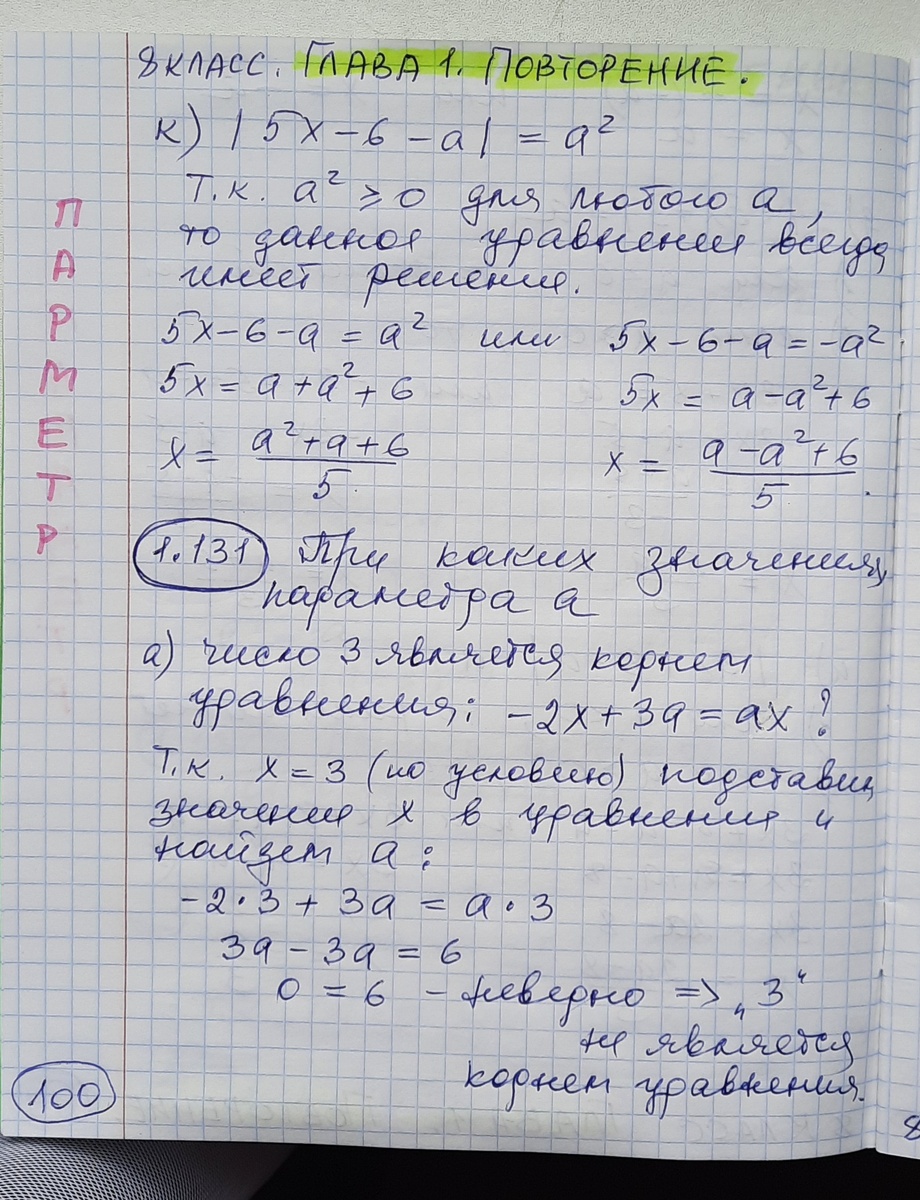 8 КЛАСС. ГЛАВА 1. ПОВТОРЕНИЕ.
к) |5x-6-a| = a²
Т.к. a² ≥ 0 для любого a,
то данное уравнение всегда
имеет решение.
5x-6-a = a² или 5x-6-a = -a²
5x = a+a²+6 5x = a-a²+6
x = (a²+a+6)/5 x = (a-a²+6)/5.
ПАРМЕТР
1.131 При каких значениях
параметра a
а) число 3 является корнем
уравнения: -2x+3a = ax?
Т.к. x=3 (по условию) подставим
значение x в уравнение и
найдем a:
-2·3 + 3a = a·3
3a - 3a = 6
0 = 6 - неверно => „3“
не является
корнем уравнения.
100
8